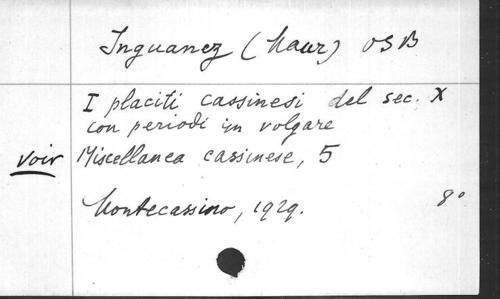 Inguanez (Maur) OSB
I placiti cassinesi del sec. X
con periodi in volgare
voir Miscellanea cassinese, 5
Montecassino, 1929. 8°